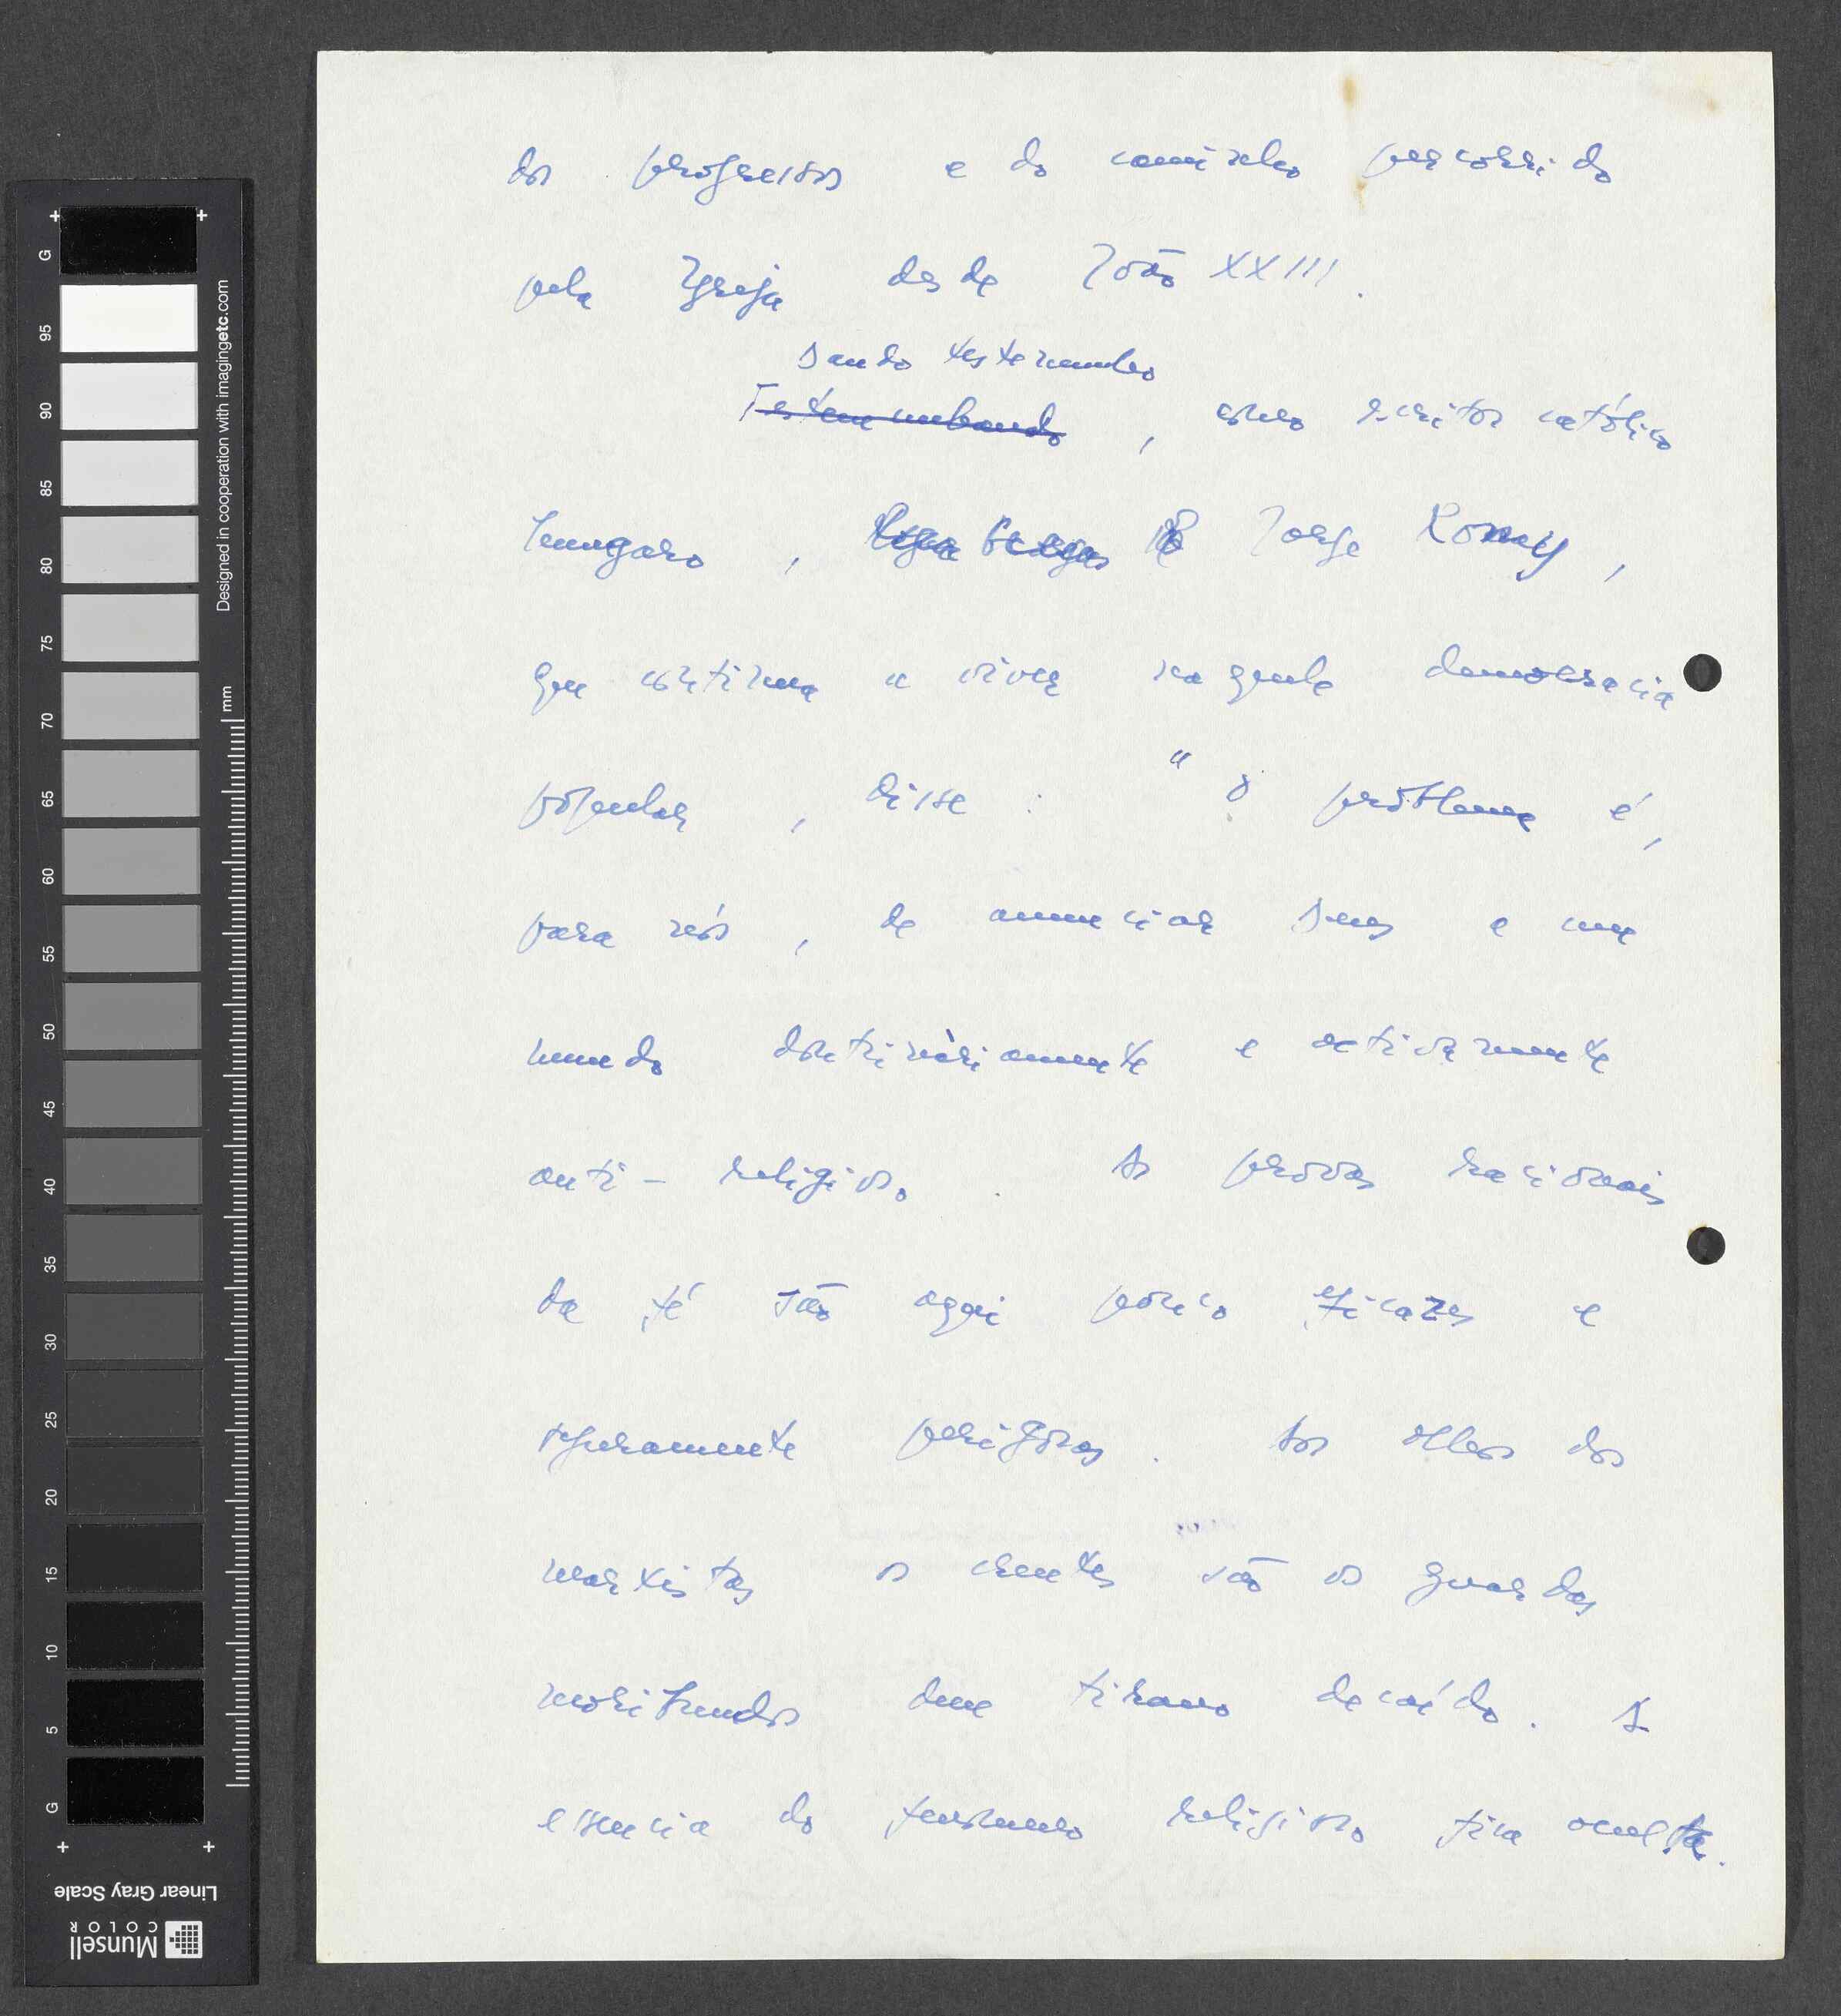 dos progressos e do caminho percorrido
pela Igreja desde João XXIII.
Dando testemunho
Testemunhando, como escritor católico
hungaro, Jorge Rónay,
que continua a viver naquela democracia
popular, disse: "O problema é,
para nós, de anunciar Deus e um
mundo doutrinàriamente e activamente
anti-religioso. As provas racionais
da fé são aqui pouco eficazes e
seguramente perigosas. Aos olhos dos
marxistas os crentes são os guardas
moribundos dum tirano decaído. A
essencia do fenómeno religioso fica oculta.
G
95
90
85
80
75
70
65
60
55
50
45
40
35
30
25
20
15
10
5
G
mm
Designed in cooperation with imagingetc.com
Linear Gray Scale
Munsell
COLOR